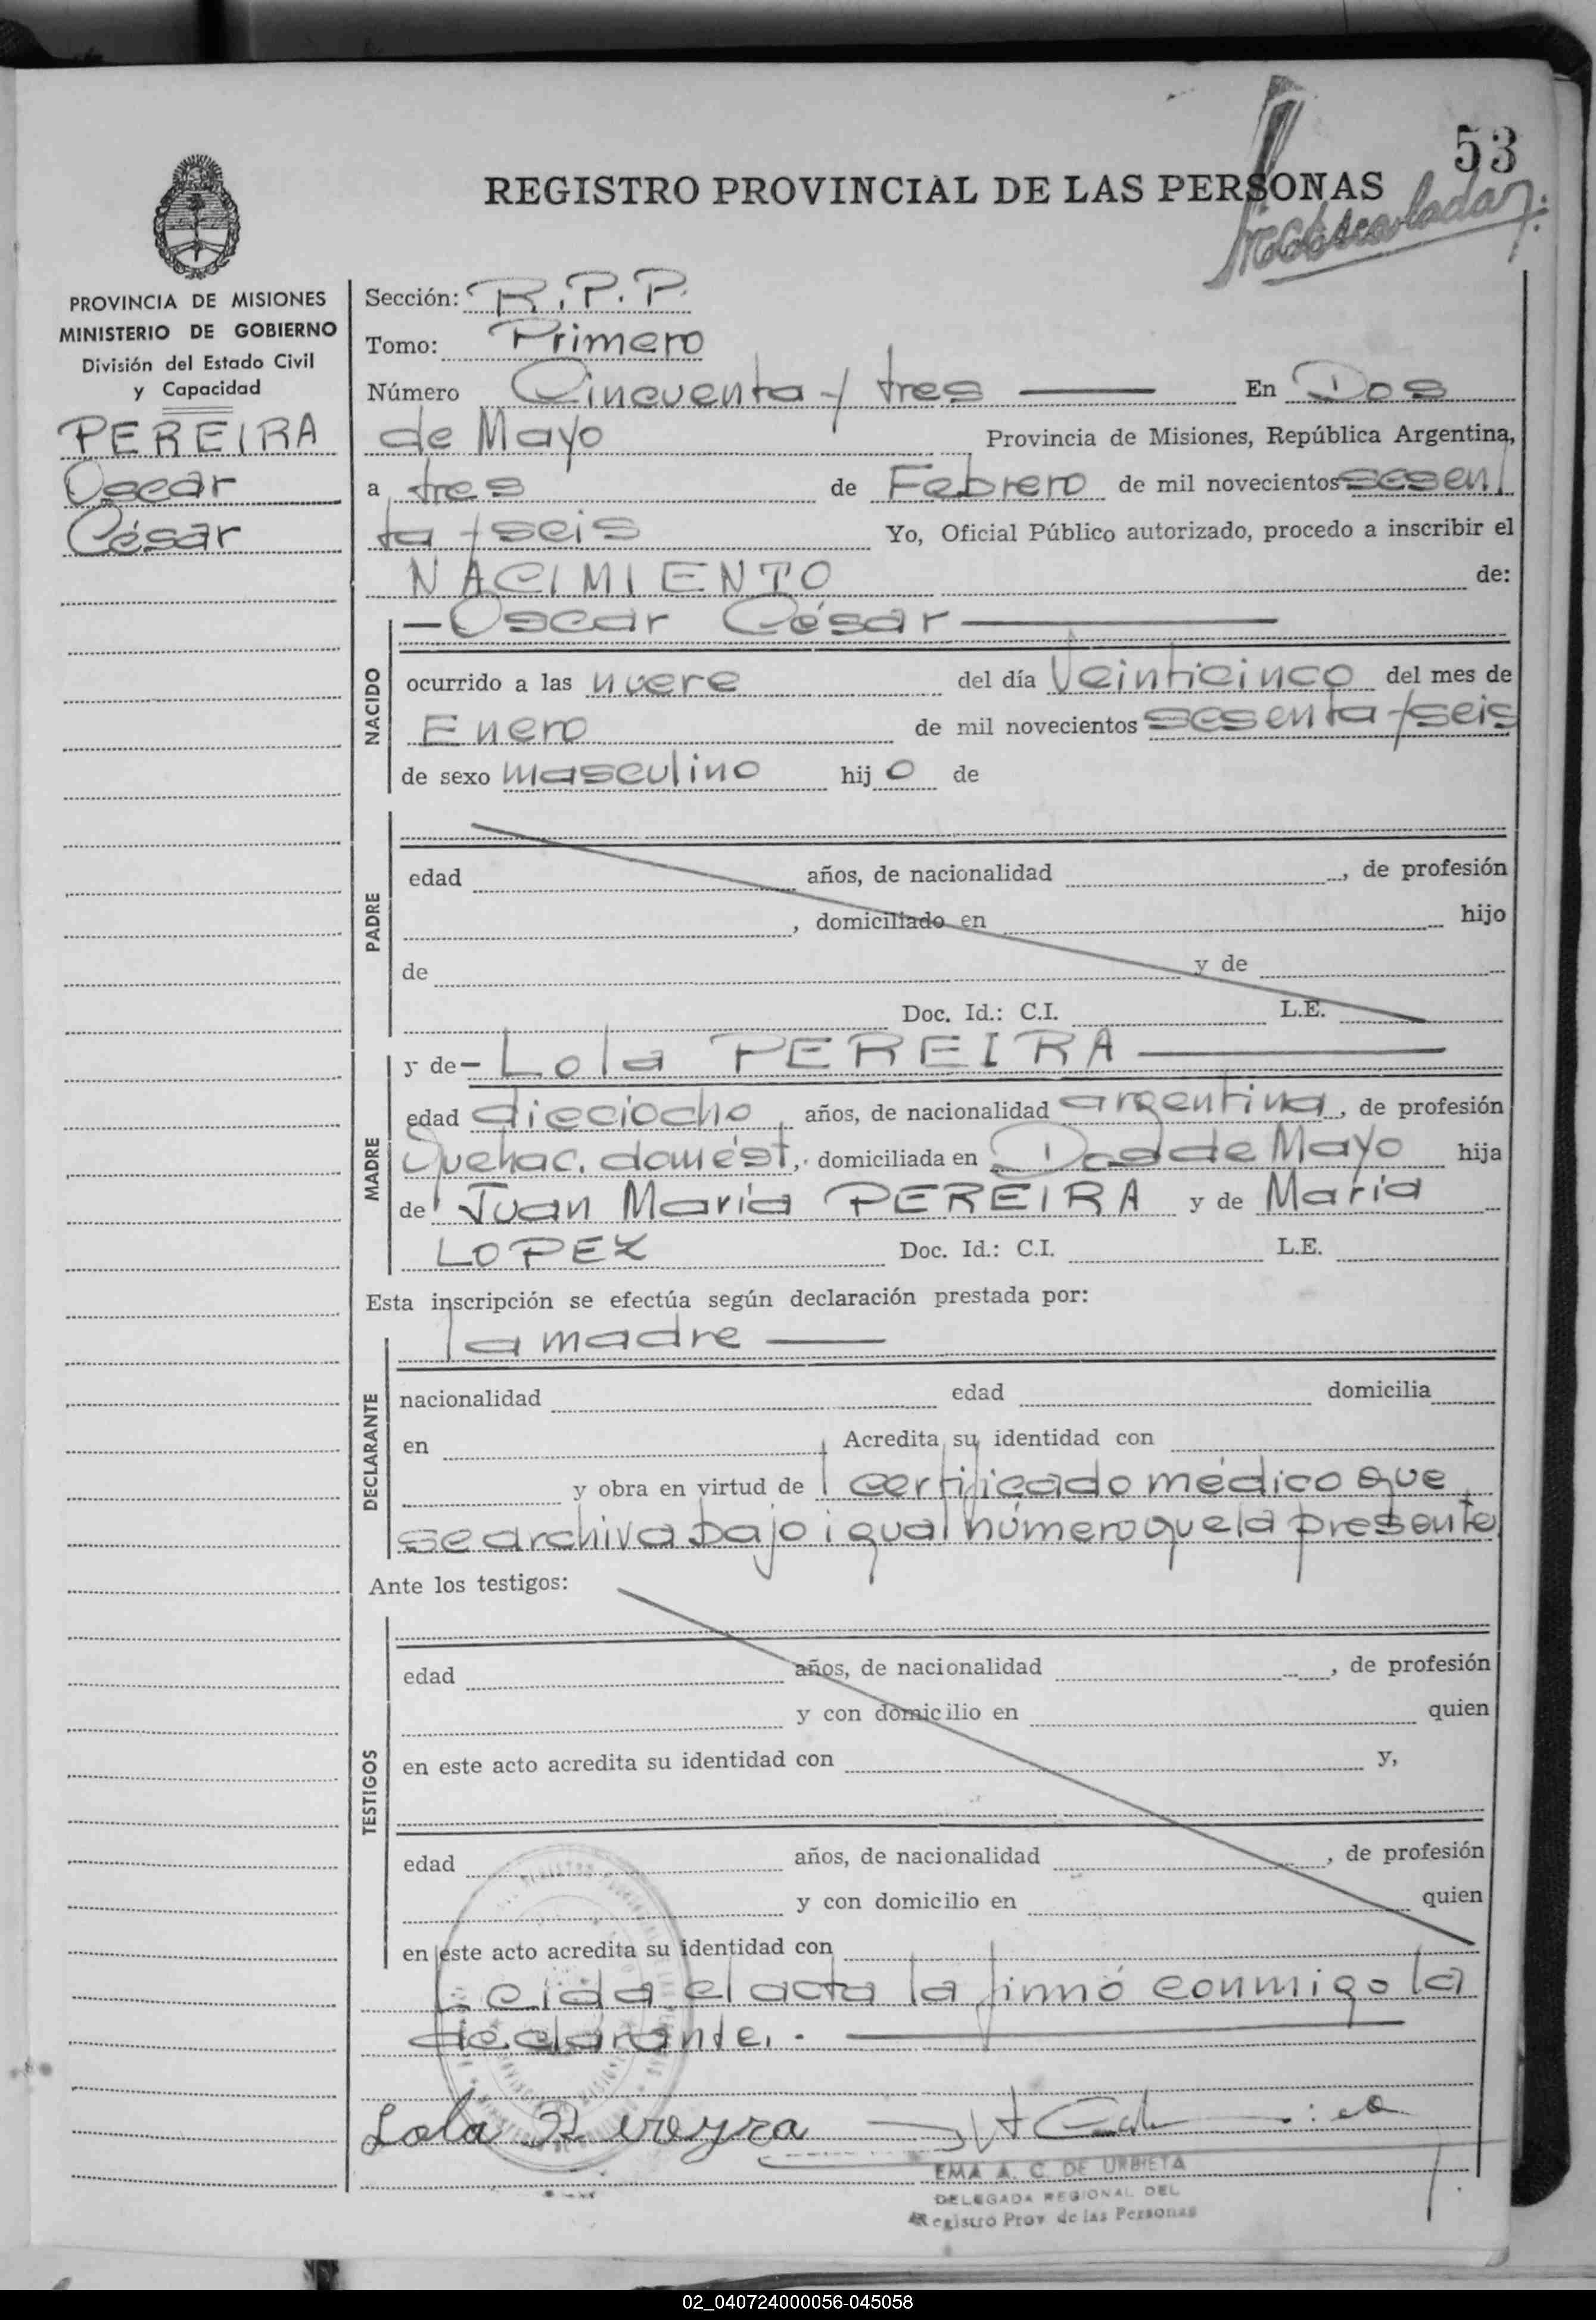 53
REGISTRO PROVINCIAL DE LAS PERSONAS
PROVINCIA DE MISIONES
MINISTERIO DE GOBIERNO
División del Estado Civil
y Capacidad
PEREIRA
Oscar
César
Sección: R.P.P.
Tomo: Primero
Número Cincuenta y tres — En Dos
de Mayo Provincia de Misiones, República Argentina,
a tres de Febrero de mil novecientos sesen
ta y seis Yo, Oficial Público autorizado, procedo a inscribir el
NACIMIENTO de:
NACIDO
— Oscar César —
ocurrido a las nueve del día Veinticinco del mes de
Enero de mil novecientos sesenta y seis
de sexo masculino hijo de
PADRE
edad años, de nacionalidad , de profesión
, domiciliado en hijo
de y de
Doc. Id.: C.I. L.E.
MADRE
y de — Lola PEREIRA —
edad dieciocho años, de nacionalidad argentina, de profesión
Quehac. domést., domiciliada en Dos de Mayo hija
de Juan María PEREIRA y de María
LOPEZ Doc. Id.: C.I. L.E.
Esta inscripción se efectúa según declaración prestada por:
DECLARANTE
la madre —
nacionalidad edad domicilia
en Acredita su identidad con
y obra en virtud de certificado médico que
se archiva bajo igual número que la presente
Ante los testigos:
TESTIGOS
edad años, de nacionalidad , de profesión
y con domicilio en quien
en este acto acredita su identidad con y,
edad años, de nacionalidad , de profesión
y con domicilio en quien
en este acto acredita su identidad con
Leida el acta la firmó conmigo la
declarante. —
Lola Pereyra
EMA A. C. DE URBIETA
DELEGADA REGIONAL DEL
Registro Prov de las Personas
02_040724000056-045058